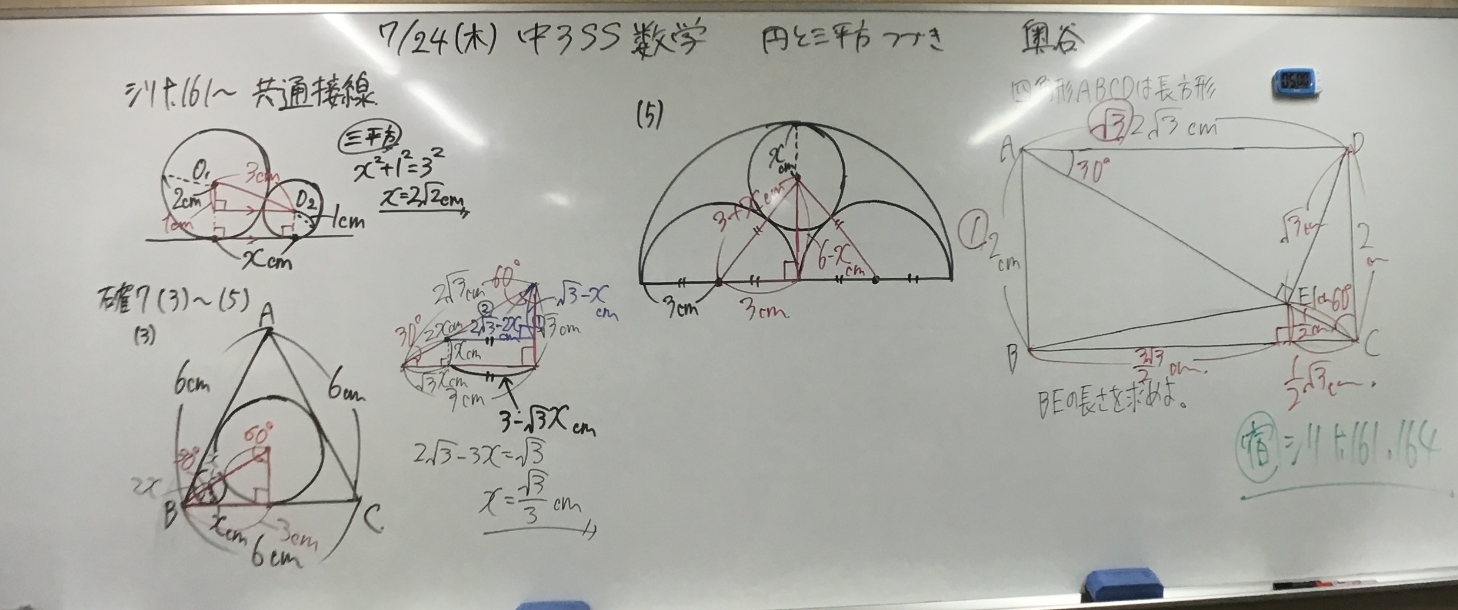 7/24(木) 中3SS 数学 円と三平方つづき 奥谷
シリt.161〜 共通接線
三平方
x²+1²=3²
x=2√2cm
O₁
3cm
2cm
1cm
O₂
1cm
xcm
確7(3)〜(5)
(3)
A
6cm
6cm
60°
30°
2x
B
xcm
3cm
C
6cm
2√3cm
60°
√3-x
cm
30°
2xcm
②
2√3-2x
cm
①
√3cm
xcm
√3xcm
3cm
3-√3xcm
2√3-3x=√3
x=√3/3 cm
(5)
xcm
3+xcm
6-x
cm
3cm
3cm
四角形ABCDは長方形
√3 2√3cm
A
D
30°
① 2
cm
√3cm
2
cm
E
1cm
60°
2cm
B
3√3/2 cm.
C
1/2√3cm.
BEの長さを求めよ。
宿 シリt.161.164